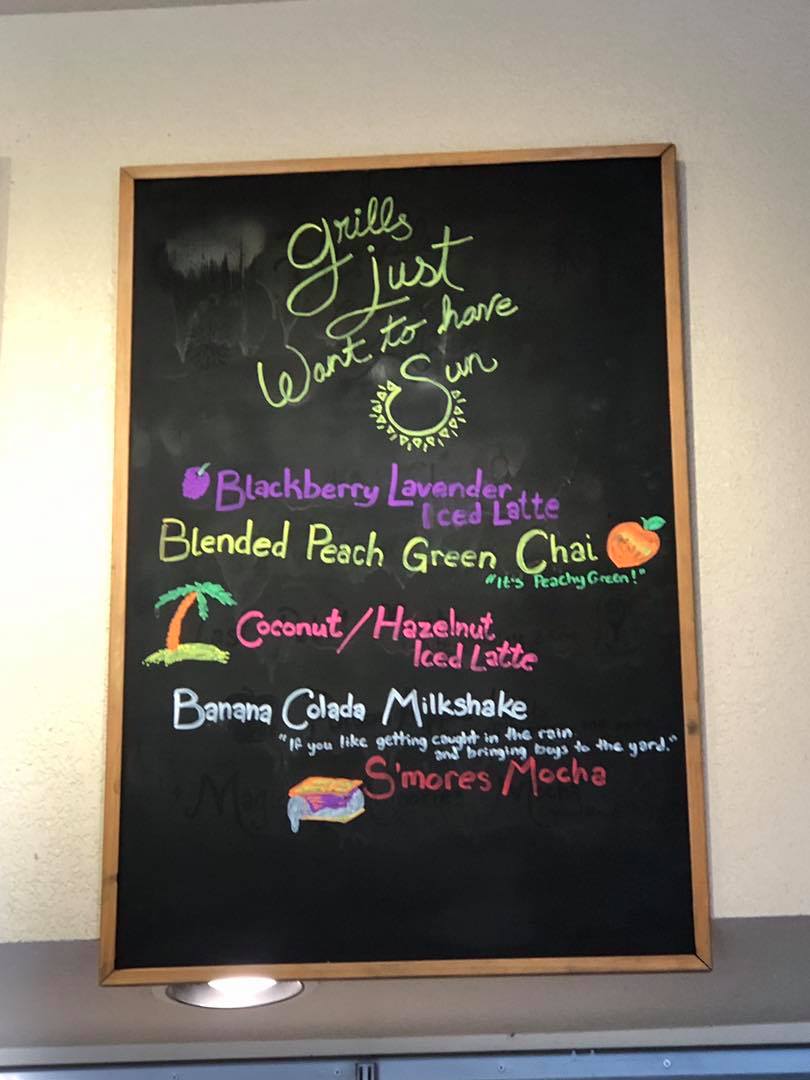 grills
just
Want to have
Sun
Blackberry Lavender
Iced Latte
Blended Peach Green Chai
"It's Peachy Green!"
Coconut/Hazelnut
Iced Latte
Banana Colada Milkshake
"If you like getting caught in the rain
and bringing boys to the yard."
S'mores Mocha